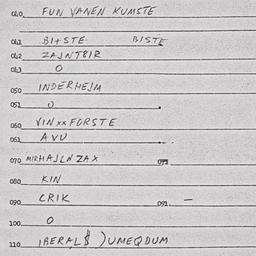 040 FUN VANEN KUMSTE
041 BI+STE BISTE
042 ZAJNT8IR
043 O
050 INDERHEJM
051 O
060 VIN xx FORSTE
061 AVU
070 MIRHAJLNZAX 071
080 KIN
090 CRIK 091 —
100 O
110